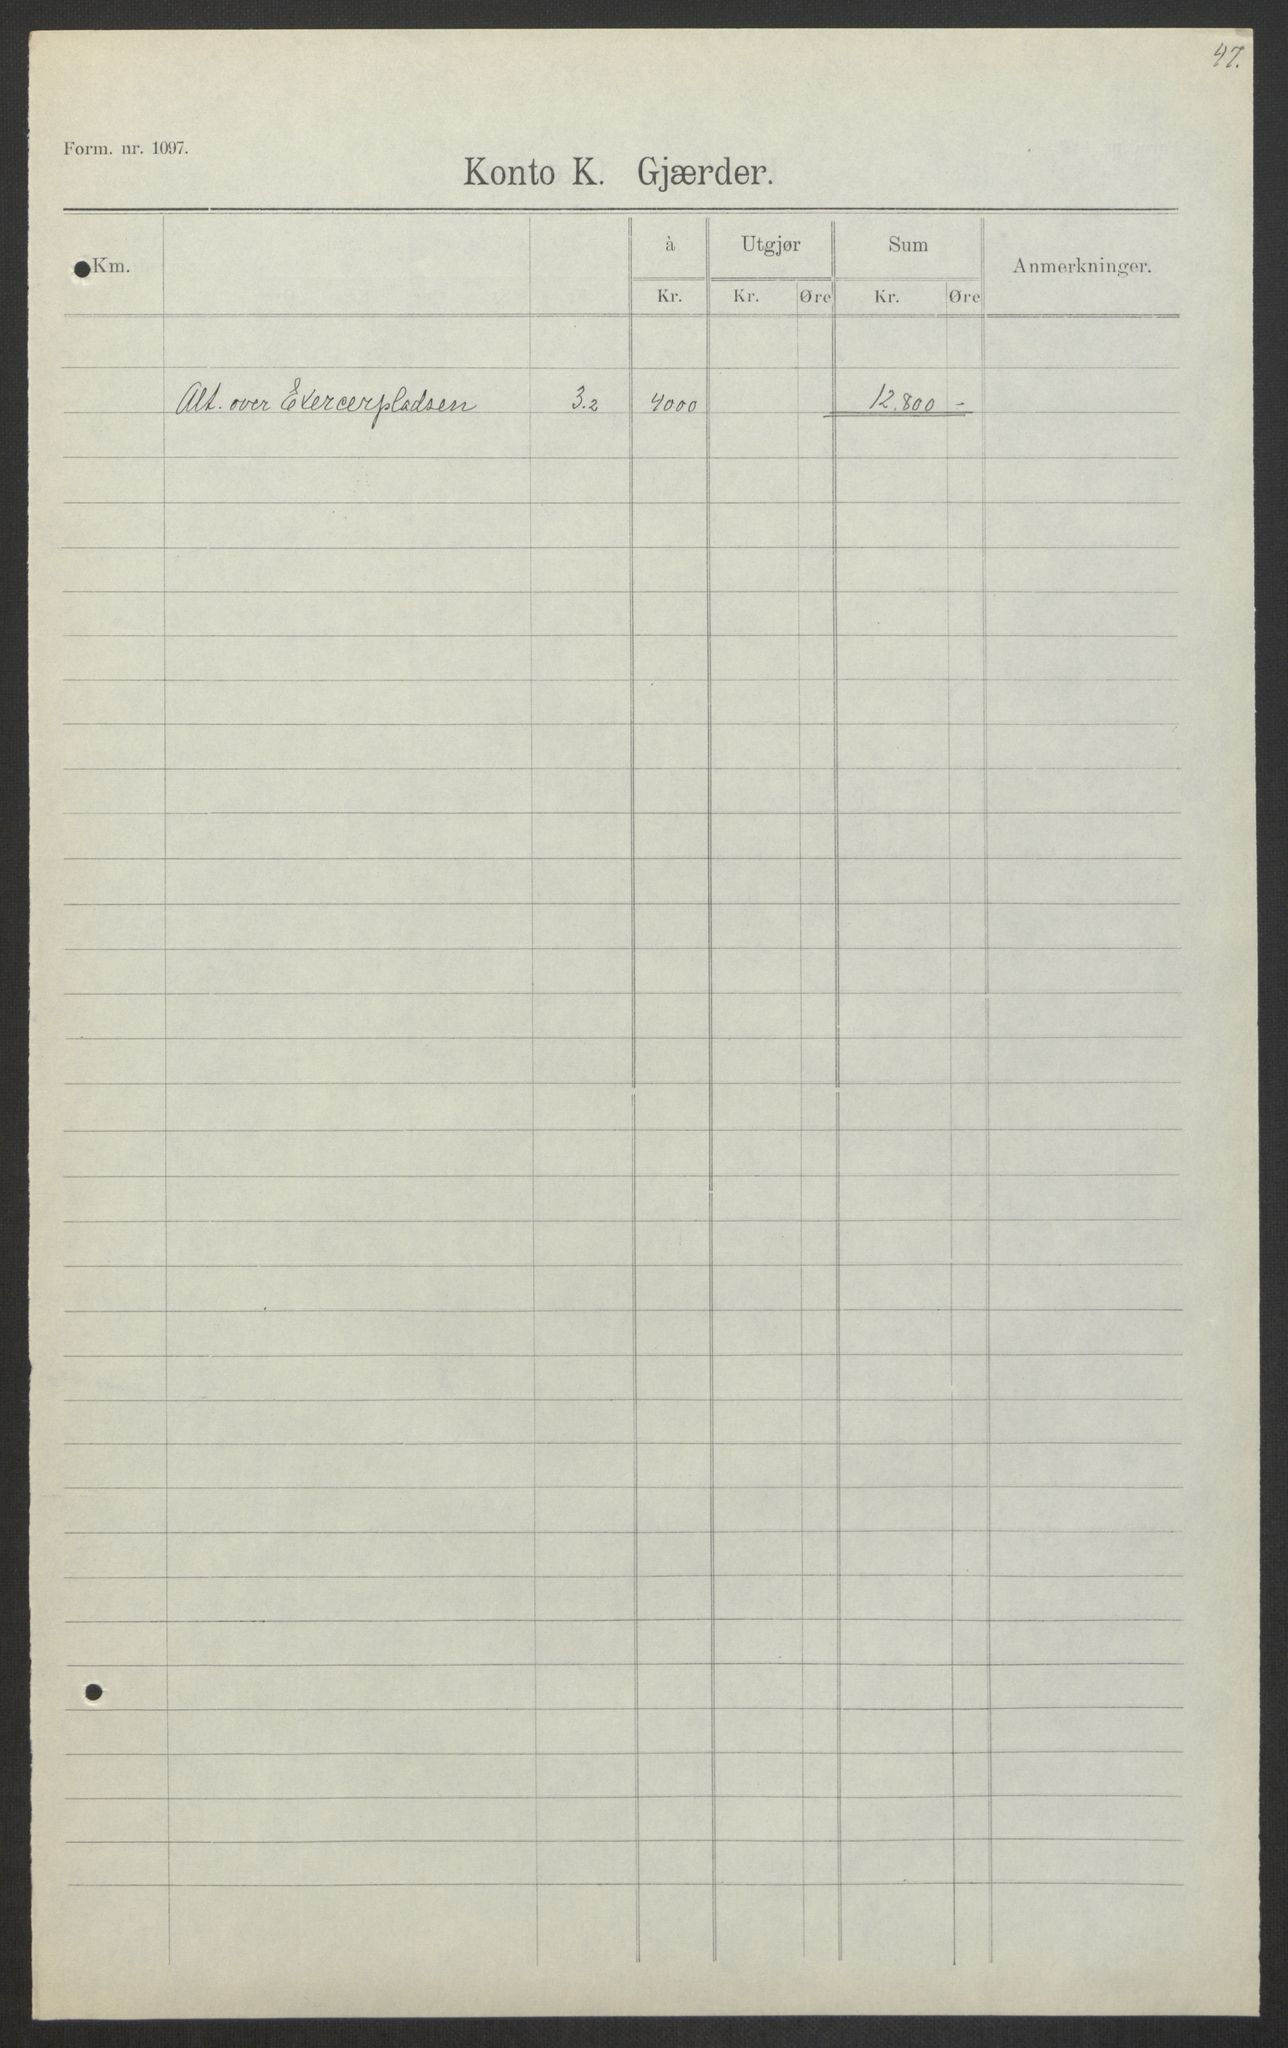 47.
Form. nr. 1097.
Konto K. Gjærder.
Km. à Utgjør Sum Anmerkninger.
Kr. Kr. Øre Kr. Øre
Alt. over Exercerpladsen 3.2 4000 12.800 -